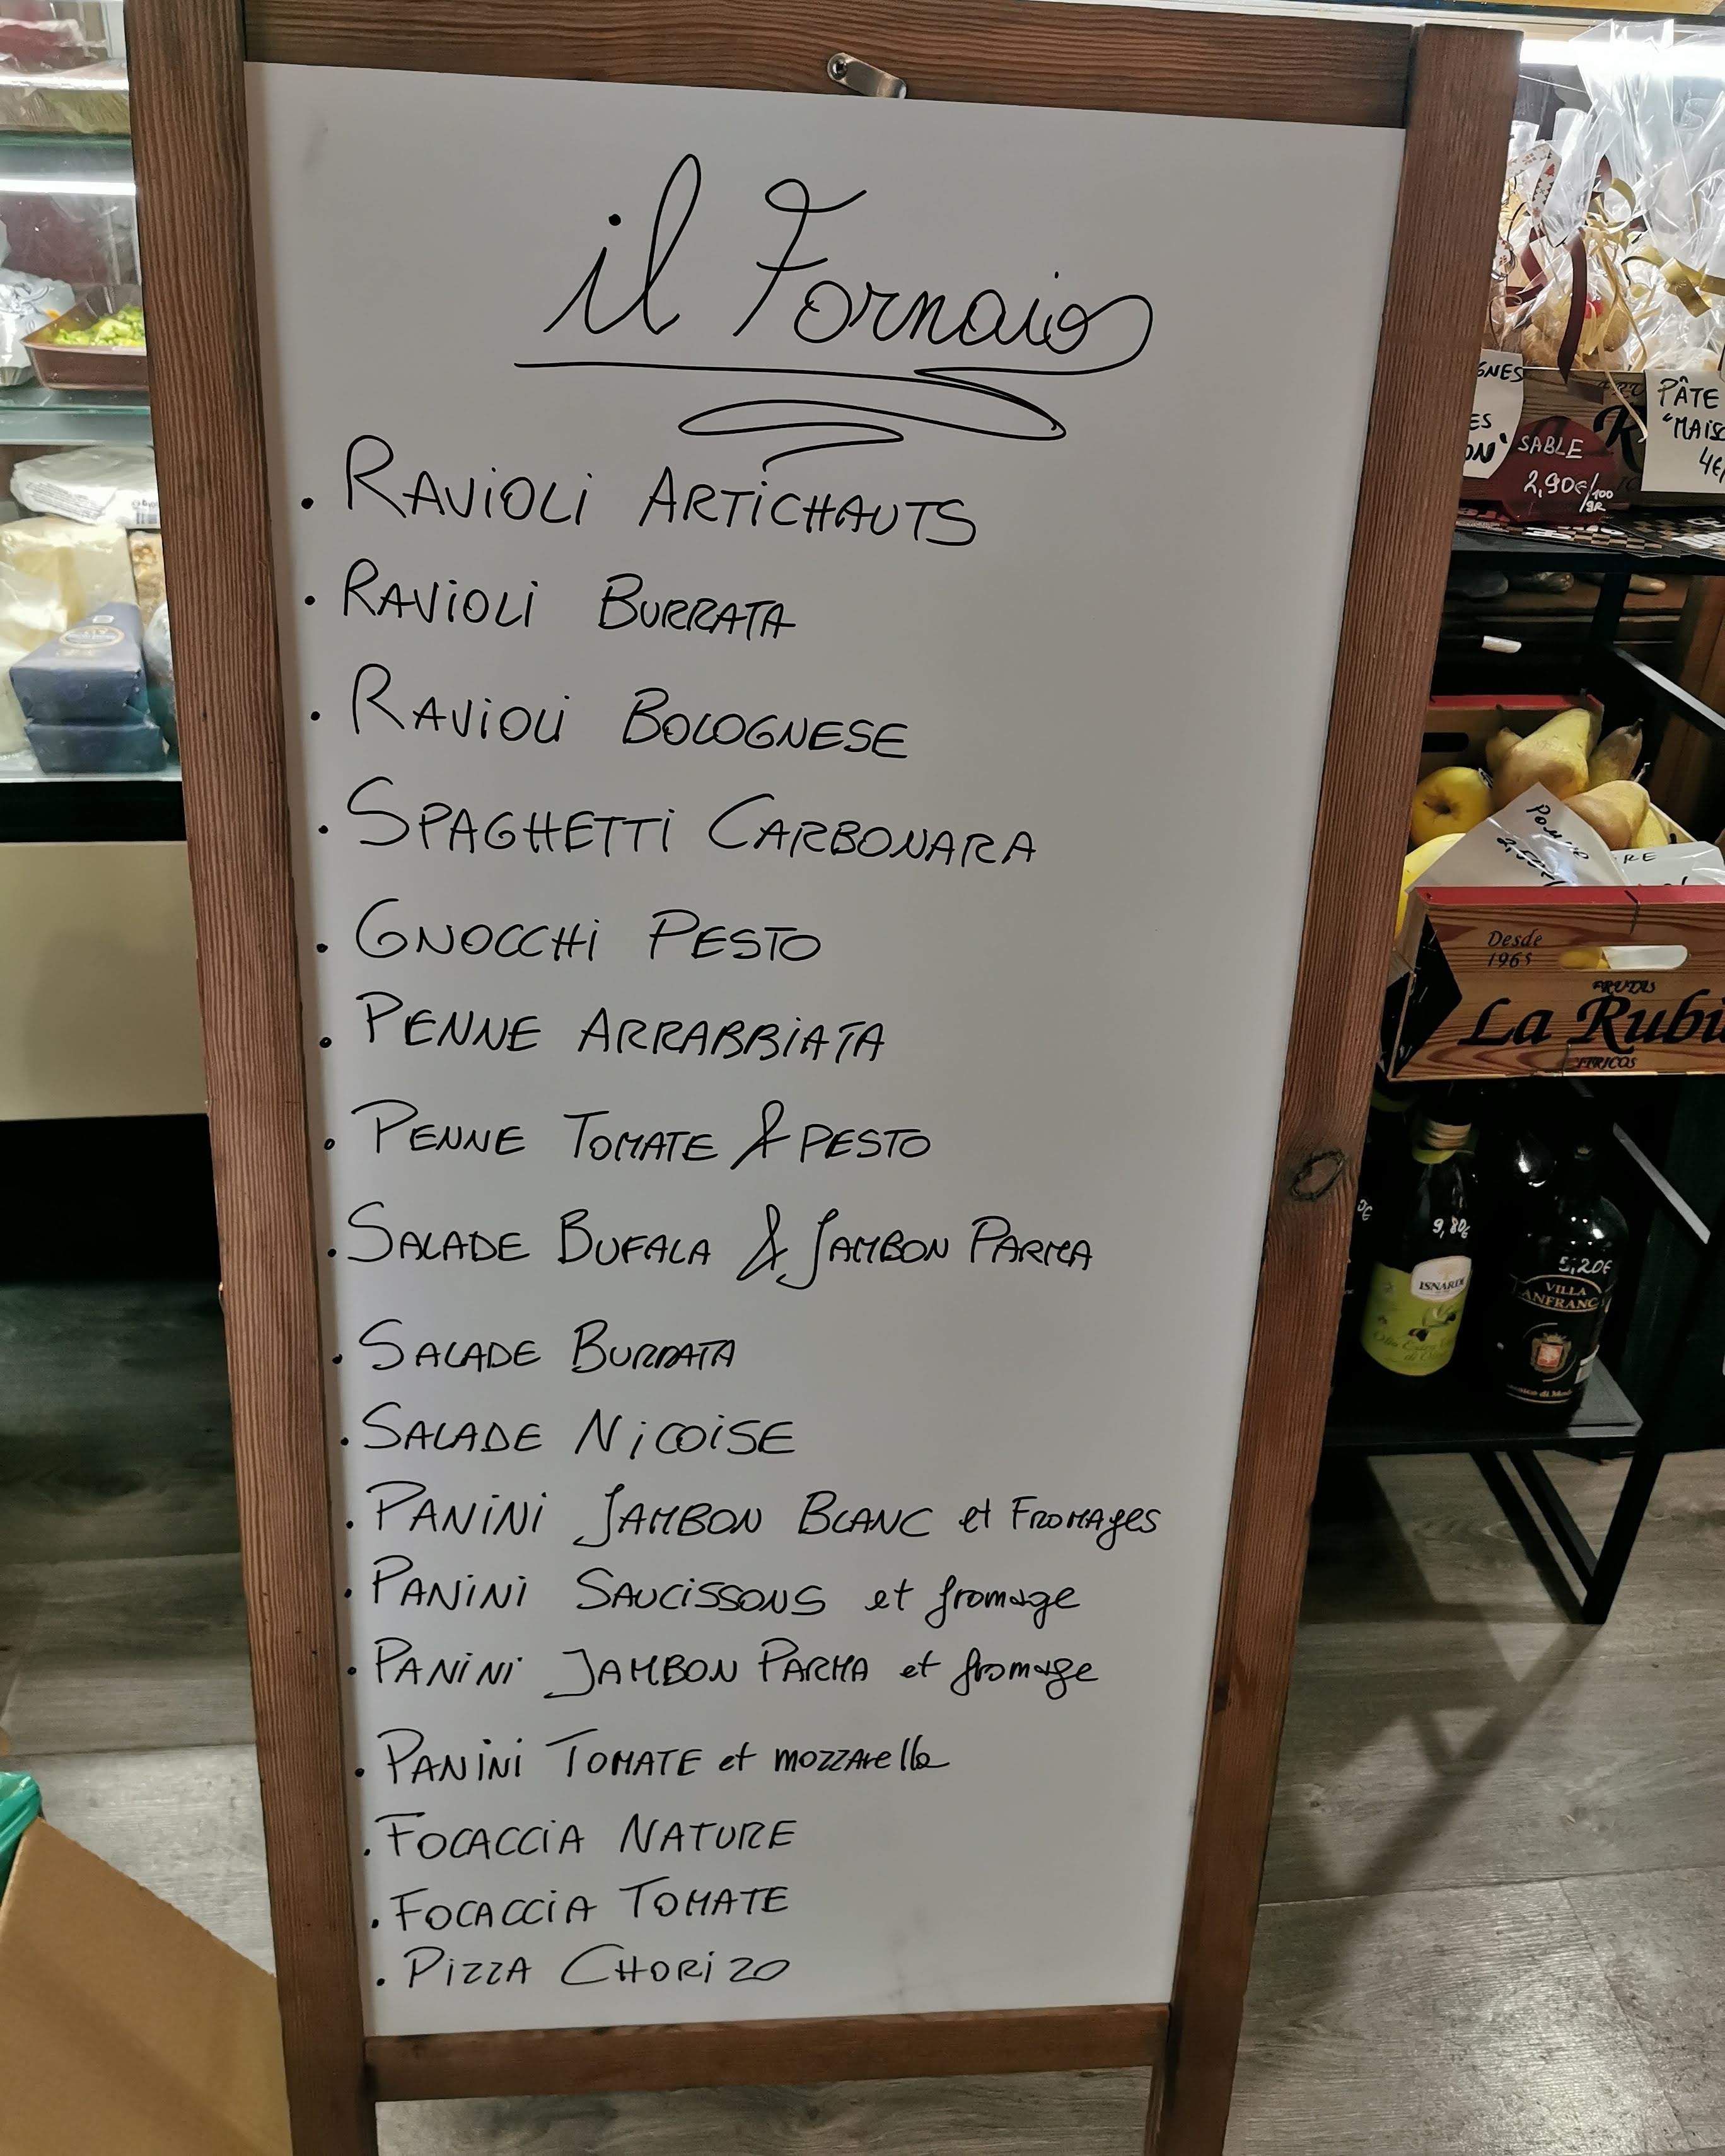 il Fornaio
. RAViOLi ARTiCHAUTS
. RAViOLi BURRATA
. RAViOLi BOLOGNESE
. SPAGHETTi CARBONARA
. GNOCCHi PESTO
. PENNE ARRABBiATA
. PENNE TOMATE & PESTO
. SALADE BUFALA & JAMBON PARMA
. SALADE BURRATA
. SALADE NiCOiSE
. PANiNi JAMBON BLANC et FROMAges
. PANiNi SAUCiSSONS et fromage
. PANiNi JAMBON PARMA et fromage
. PANiNi TOMATE et mozzarella
. FOCACCiA NATURE
. FOCACCiA TOMATE
. PiZZA CHORiZO
SABLE
2,90€/100
gR
PÂTE
4€/
Desde
1965
FRUTAS
La Rubi
9,80€
ISNARDI
5,20€
VILLA